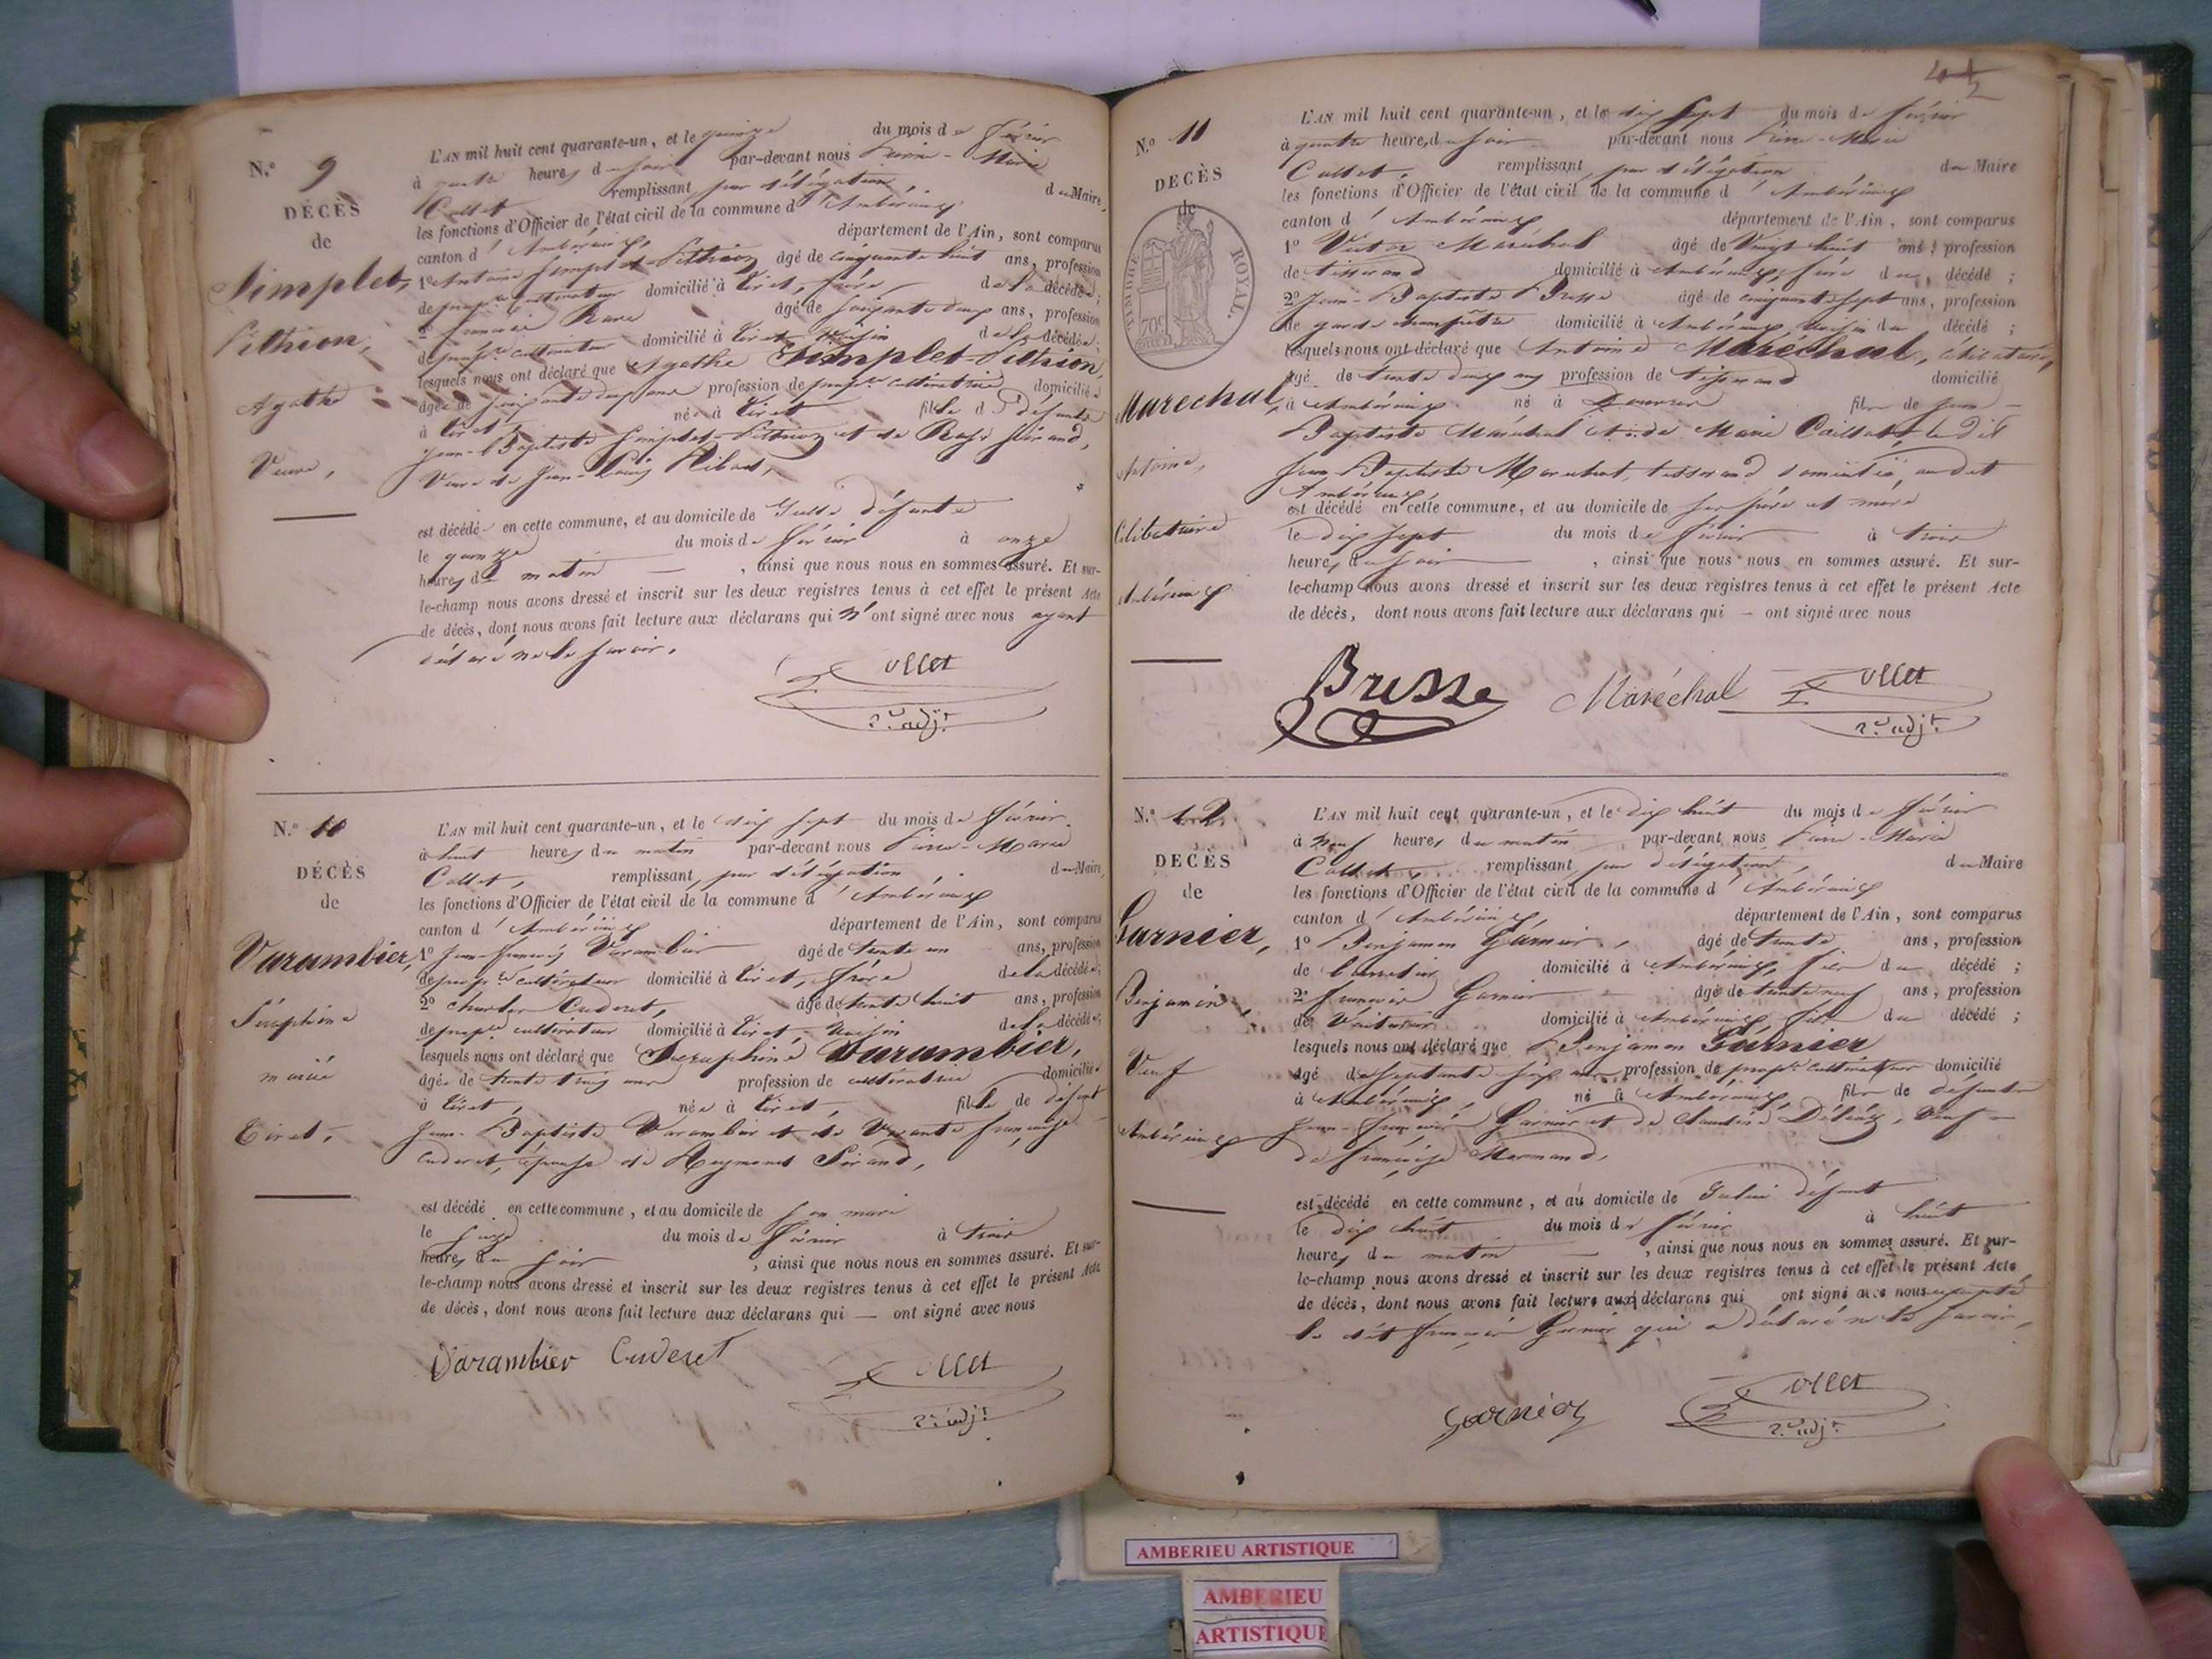 N.° 9
DÉCÈS
de
Simplet,
Pithion,
Agathe
Veuve,
L'AN mil huit cent quarante-un, et le quinze du mois de février
à quatre heures du soir par-devant nous Pierre-Marie
Collet, remplissant, par délégation, du Maire,
les fonctions d'Officier de l'état civil de la commune d'Ambérieux
canton d'Ambérieux, département de l'Ain, sont comparus
1° Antoine Simplet-Pithion âgé de cinquante huit ans, profession
de prop.re cultivateur domicilié à Tiret, frère de la décédée;
2° François âgé de soixante deux ans, profession
de prop.re cultivateur domicilié à Tiret, voisin de la décédée;
lesquels nous ont déclaré que Agathe Simplet-Pithion,
âgée de soixante deux ans profession de prop.re cultivatrice domiciliée
à Tiret, née à Tiret fille de défunts
Jean-Baptiste Simplet-Pithion et de Sirand,
Veuve de Jean-Louis
est décédé en cette commune, et au domicile de Ladite défunte
le quinze du mois de février à onze
heures du matin, ainsi que nous nous en sommes assuré. Et sur-
le-champ nous avons dressé et inscrit sur les deux registres tenus à cet effet le présent Acte
de décès, dont nous avons fait lecture aux déclarans qui n'ont signé avec nous ayant
déclaré ne le savoir.
Collet
2.d adj.t
N.° 10
DÉCÈS
de
Varambier,
Séraphine
mariée
Tiret,
L'AN mil huit cent quarante-un, et le dix sept du mois de février
à huit heures du matin par-devant nous Pierre-Marie
Collet, remplissant, par délégation du Maire,
les fonctions d'Officier de l'état civil de la commune d'Ambérieux
canton d'Ambérieux département de l'Ain, sont comparus
1° Jean-François Varambier âgé de trente un ans, profession
de prop.re cultivateur domicilié à Tiret, frère de la décédée;
2° Charles Cuderet, âgé de trente huit ans, profession
de prop.re cultivateur domicilié à Tiret, voisin de la décédée;
lesquels nous ont déclaré que Séraphine Varambier,
âgée de trente trois ans profession de cultivatrice domiciliée
à Tiret, née à Tiret, fille de défunt
Jean-Baptiste Varambier et de Vivante françoise
Cuderet, épouse de Reymond Sirand,
est décédé en cette commune, et au domicile de son mari
le seize du mois de février à trois
heures du soir, ainsi que nous nous en sommes assuré. Et sur-
le-champ nous avons dressé et inscrit sur les deux registres tenus à cet effet le présent Acte
de décès, dont nous avons fait lecture aux déclarans qui — ont signé avec nous
Varambier Cuderet Collet
2.d adj.t
N.° 11
DÉCÈS
de
TIMBRE ROYAL.
70c
Maréchal,
Antoine,
Célibataire
Ambérieux
L'AN mil huit cent quarante-un, et le dix sept du mois de février
à quatre heures du soir par-devant nous Pierre-Marie
Collet, remplissant, par délégation du Maire
les fonctions d'Officier de l'état civil de la commune d'Ambérieux
canton d'Ambérieux département de l'Ain, sont comparus
1° Victor Maréchal âgé de Vingt huit ans, profession
de tisserand domicilié à Ambérieux, frère du décédé;
2° Jean-Baptiste Brusse âgé de cinquante sept ans, profession
de garde champêtre domicilié à Ambérieux, voisin du décédé;
lesquels nous ont déclaré que Antoine Maréchal, célibataire,
âgé de trente deux ans profession de tisserand domicilié
à Ambérieux né à fils de Jean-
Baptiste Maréchal et de Marie Caillat, le dit
Jean-Baptiste Maréchal, tisserand domicilié audit
Ambérieux
est décédé en cette commune, et au domicile de ses père et mère
le dix sept du mois de février à trois
heures du soir, ainsi que nous nous en sommes assuré. Et sur-
le-champ nous avons dressé et inscrit sur les deux registres tenus à cet effet le présent Acte
de décès, dont nous avons fait lecture aux déclarans qui — ont signé avec nous
Brusse Maréchal Collet
2.d adj.t
N.° 12
DÉCÈS
de
Garnier,
Benjamin,
Veuf
Ambérieux
L'AN mil huit cent quarante-un, et le dix huit du mois de février
à neuf heures du matin par-devant nous Pierre-Marie
Collet, remplissant, par délégation, du Maire
les fonctions d'Officier de l'état civil de la commune d'Ambérieux
canton d'Ambérieux, département de l'Ain, sont comparus
1° Benjamin Garnier, âgé de trente ans, profession
de domicilié à Ambérieux, fils du décédé;
2° François Garnier âgé de trente neuf ans, profession
de Voiturier domicilié à Ambérieux fils du décédé;
lesquels nous ont déclaré que Benjamin Garnier
âgé de septante six ans profession de prop.re cultivateur domicilié
à Ambérieux, né à Ambérieux, fils de défunts
Jean-François Garnier et de Claudine, Veuf
de françoise
est décédé en cette commune, et au domicile de Celui défunt
le dix huit du mois de février à huit
heures du matin, ainsi que nous nous en sommes assuré. Et sur-
le-champ nous avons dressé et inscrit sur les deux registres tenus à cet effet le présent Acte
de décès, dont nous avons fait lecture aux déclarans qui ont signé avec nous excepté
le dit françois Garnier qui a déclaré ne le savoir,
Garnier Collet
2.d adj.t
AMBERIEU ARTISTIQUE
AMBERIEU
ARTISTIQUE